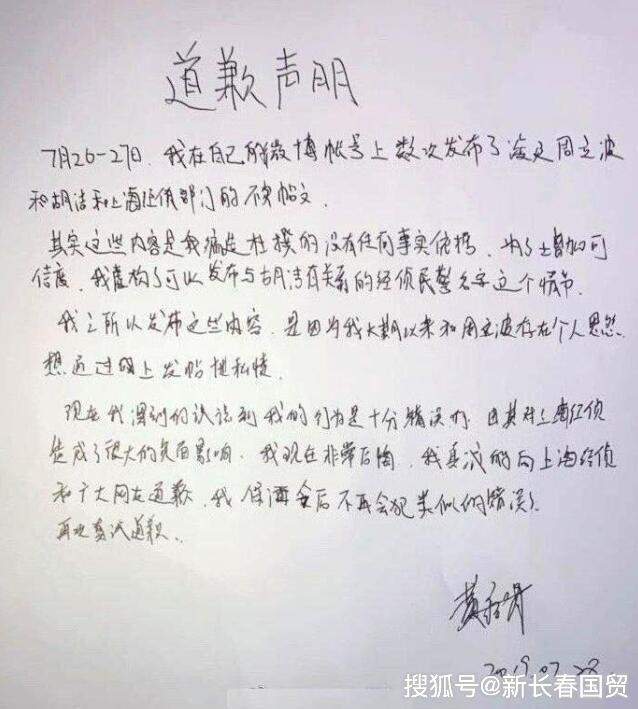 道歉声明
7月26-27日,我在自己的微博帐号上数次发布了涉及周立波
和胡洁和上海经侦部门的不实帖文.
其实这些内容是我编造杜撰的没有任何事实依据.为了增加可
信度,我虚构了可以发布与胡洁有关系的经侦民警名字这个情节.
我之所以发布这些内容,是因为我长期以来和周立波存在个人恩怨
想通过网上发帖泄私愤.
现在我深刻的认识到我的行为是十分错误的,因其对上海经侦
造成了很大的负面影响.我现在非常后悔,我真诚的向上海经侦
和广大网友道歉,我保证今后不再会犯类似的错误.
再次真诚道歉.
2019.07.28
搜狐号@新长春国贸